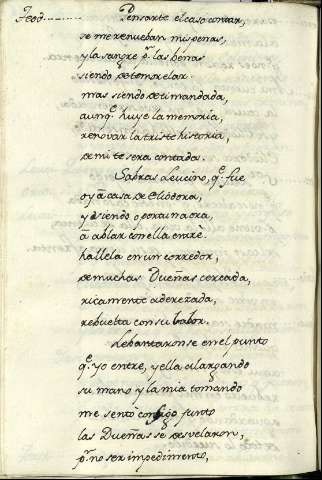 Teod........... Pensarte el caso contar,
se me renueban mis penas,
y la sangre pr. las benas
siendo de temor elar.
mas siendo de ti mandada,
aunq.e huye la memoria,
renovar la triste historia,
de mi te sera contada.
Sabras Leucino, q.e fue
oy â casa de Eliodora,
y siendo oportuna ora,
â ablar con ella entrè.
hallela en un corredor,
de muchas Dueñas cercada,
ricamente aderezada,
rebuelta con su labor.
Lebantaronse en el punto
q.e yo entre, y ella alargando
su mano y la mia tomando
me sentò consigo junto
las Dueñas se desvelaron,
pr. no ser impedimento,